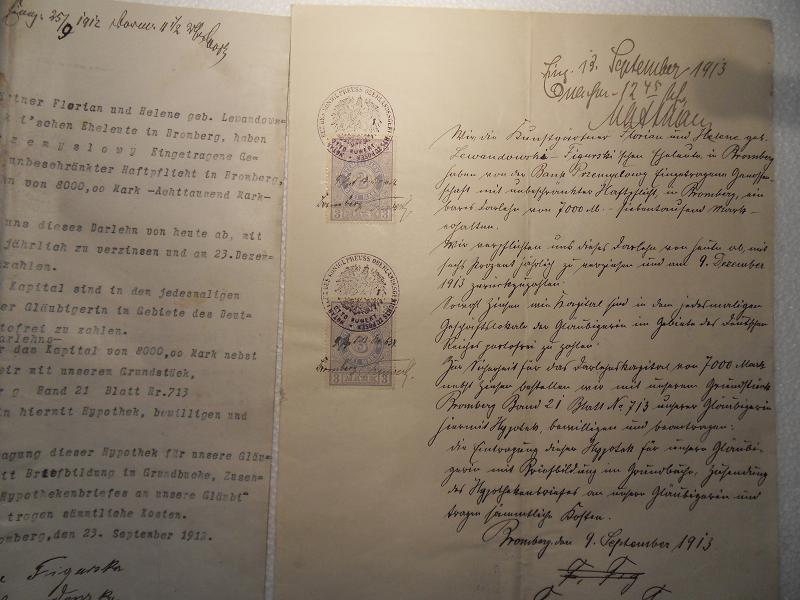 Eing. 25/9 1912 Vorm 11 1/2 Uhr
rtner Florian und Helene geb. Lewandows-
i'schen Eheleute in Bromberg, haben
zemyslowy Eingetragene Ge-
unbeschränkter Haftpflicht in Bromberg,
hn von 8000,oo Mark -Achttausend Mark-
uns dieses Darlehn von heute ab, mit
jährlich zu verzinsen und am 23.Dezem-
zahlen.
Kapital sind in dem jedesmaligen
er Gläubigerin im Gebiete des Deut-
tofrei zu zahlen.
arlehns-
r das Kapital von 8000,oo Mark nebst
wir mit unserem Grundstück,
r g Band 21 Blatt Nr.713
in hiermit Hypothek, bewilligen und
agung dieser Hypothek für unsere Gläu-
it Briefbildung im Grundbuche, Zusen-
Hypothekenbriefes an unsere Gläubi-
tragen sämmtliche Kosten.
omberg,den 23. September 1912.
Figurska
3 MARK 3
3 MARK 3
Eing. 13. September 1913
12 45
Wir die Kunstgärtner Florian und Helene geb.
Lewandowska - Figurski'schen Eheleute in Bromberg
haben von der Bank Przemysłowy Eingetragene Genossen-
schaft mit unbeschränkter Haftpflicht, in Bromberg, ein
bares Darlehn von 7000 M. - Siebentausend Mark -
erhalten.
Wir verpflichten uns dieses Darlehn von heute ab, mit
sechs Prozent jährlich zu verzinsen und am 9. Dezember
1913 zurückzuzahlen.
Sowohl Zinsen wie Kapital sind in dem jedesmaligen
Geschäftslokale der Gläubigerin im Gebiete des Deutschen
Reiches portofrei zu zahlen.
Zur Sicherheit für das Darlehnskapital von 7000 Mark
nebst Zinsen bestellen wir mit unserem Grundstück
Bromberg Band 21 Blatt No 713 unserer Gläubigerin
hiermit Hypotek, bewilligen und beantragen:
die Eintragung dieser Hypotek für unsere Gläubi-
gerin mit Briefbildung im Grundbuche, Zusendung
des Hypothekenbriefes an unsere Gläubigerin und
tragen sämmtliche Kosten.
Bromberg, den 9. September 1913
F. Fig